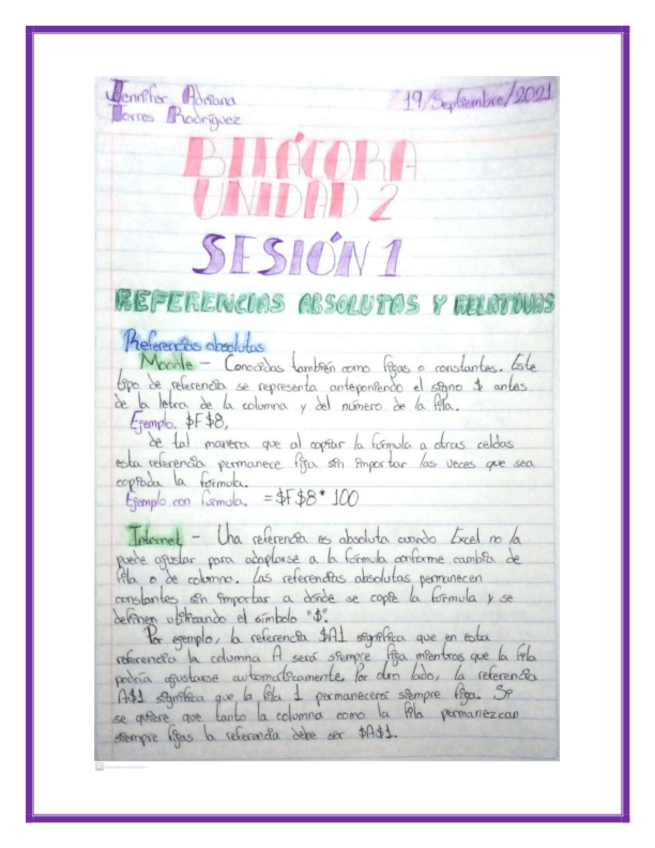 Jennifer Adriana
Torres Rodríguez
19/Septiembre/2021
BITÁCORA
UNIDAD 2
SESIÓN 1
REFERENCIAS ABSOLUTAS Y RELATIVAS
Referencias absolutas
Moodle – Conocidas también como fijas o constantes. Este
tipo de referencia se representa anteponiendo el signo $ antes
de la letra de la columna y del número de la fila.
Ejemplo. $F$8,
de tal manera que al copiar la fórmula a otras celdas
esta referencia permanece fija sin importar las veces que sea
copiada la fórmula.
Ejemplo con fórmula. = $F$8* 100
Internet – Una referencia es absoluta cuando Excel no la
puede ajustar para adaptarse a la fórmula conforme cambia de
fila o de columna. Las referencias absolutas permanecen
constantes sin importar a dónde se copie la fórmula y se
definen utilizando el símbolo "$".
Por ejemplo, la referencia $A1 significa que en esta
referencia la columna A será siempre fija mientras que la fila
podría ajustarse automáticamente. Por otro lado, la referencia
A$1 significa que la fila 1 permanecerá siempre fija. Si
se quiere que tanto la columna como la fila permanezcan
siempre fijas la referencia debe ser $A$1.